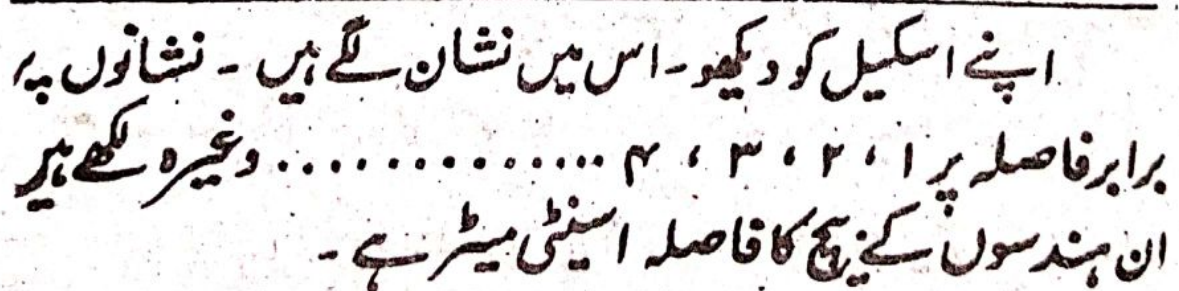 اپنے اسکیل کو دیکھو۔ اس میں نشان لگے ہیں ۔ نشانوں پر
برابر فاصلہ پر ۱ ، ۲ ، ۳ ، ۴ .............. وغیرہ لکھے ہیں
ان ہندسوں کے بیچ کا فاصلہ ۱ سینٹی میٹر ہے ۔